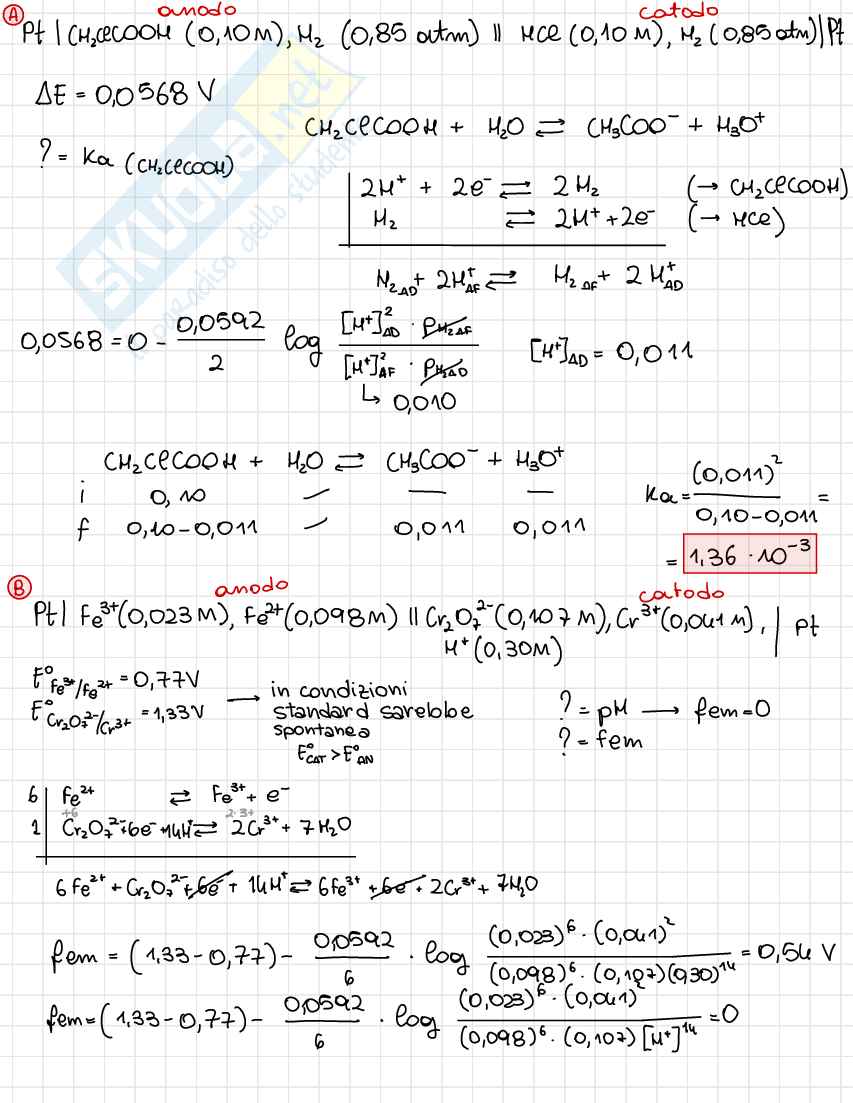 A anodo catodo
Pt | CH₂ClCOOH (0,10 M), H₂ (0,85 atm) || HCl (0,10 M), H₂ (0,85 atm) | Pt
ΔE = 0,0568 V
CH₂ClCOOH + H₂O ⇌ CH₃COO⁻ + H₃O⁺
? = Ka (CH₂ClCOOH)
2H⁺ + 2e⁻ ⇌ 2H₂ (→ CH₂ClCOOH)
H₂ ⇌ 2H⁺ + 2e⁻ (→ HCl)
H₂ AD + 2H⁺AF ⇌ H₂ AF + 2H⁺AD
0,0568 = 0 - 0,0592/2 log [H⁺]²AD · pH₂AF / [H⁺]²AF · pH₂AD [H⁺]AD = 0,011
↳ 0,010
CH₂ClCOOH + H₂O ⇌ CH₃COO⁻ + H₃O⁺
i 0,10 — — —
f 0,10-0,011 — 0,011 0,011
Ka = (0,011)² / 0,10-0,011 =
= 1,36 · 10⁻³
B anodo catodo
Pt | Fe³⁺(0,023 M), Fe²⁺(0,098 M) || Cr₂O₇²⁻(0,107 M), Cr³⁺(0,041 M), | Pt
H⁺(0,30M)
E°Fe³⁺/Fe²⁺ = 0,77V
E°Cr₂O₇²⁻/Cr³⁺ = 1,33V
→ in condizioni
standard sarebbe
spontanea
E°CAT > E°AN
? = pH → fem = 0
? = fem
6 | Fe²⁺ ⇌ Fe³⁺ + e⁻
+6 2·3+
1 | Cr₂O₇²⁻ + 6e⁻ + 14H⁺ ⇌ 2Cr³⁺ + 7H₂O
6Fe²⁺ + Cr₂O₇²⁻ + 6e⁻ + 14H⁺ ⇌ 6Fe³⁺ + 6e⁻ + 2Cr³⁺ + 7H₂O
fem = (1,33-0,77) - 0,0592/6 · log (0,023)⁶ · (0,041)² / (0,098)⁶ · (0,107)(0,30)¹⁴ = 0,54 V
fem = (1,33-0,77) - 0,0592/6 · log (0,023)⁶ · (0,041)² / (0,098)⁶ · (0,107) [H⁺]¹⁴ = 0
SKUOLA.net
il paradiso dello studente